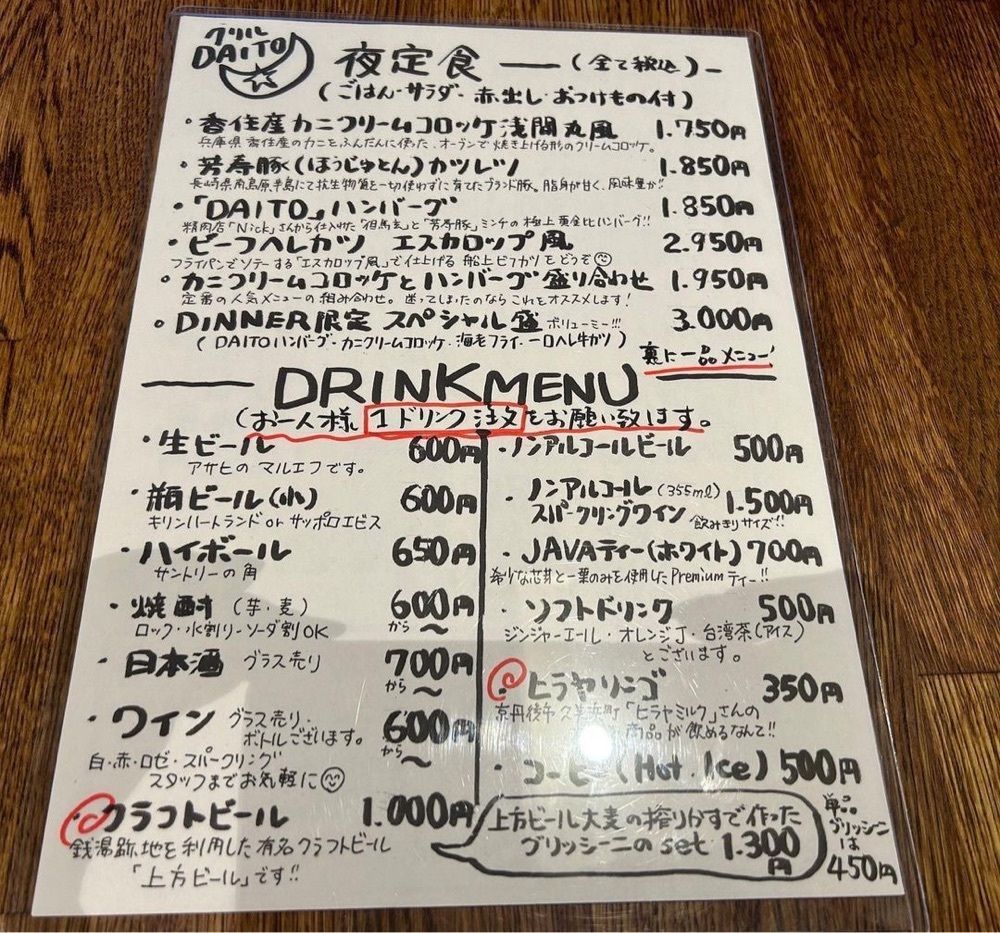 グリル
DAITO
夜定食 ―（全て税込）―
（ごはん・サラダ・赤出し・おつけもの付）
・香住産カニクリームコロッケ浅間丸風 1.750円
兵庫県香住産のカニをふんだんに使った、オーブンで焼き上げる形のクリームコロッケ。
・芳寿豚(ほうじゅとん)カツレツ 1.850円
長崎県南島原半島にて抗生物質を一切使わずに育てたブランド豚。脂身が甘く、風味豊か!!
・「DAITO」ハンバーグ 1.850円
精肉店「Nick」さんから仕入れた「相馬玄」と「芳寿豚」ミンチの極上黄金比ハンバーグ!!
・ビーフヘレカツ エスカロップ風 2.950円
フライパンでソテーする「エスカロップ風」で仕上げる船上ビフカツをどうぞ
・カニクリームコロッケとハンバーグ盛り合わせ 1.950円
定番の人気メニューの組み合わせ。迷ってしまったのならこれをオススメします!
・DINNER限定 スペシャル盛 ボリューミー!!! 3.000円
(DAITOハンバーグ・カニクリームコロッケ・海老フライ・一口ヘレ牛カツ)
裏に一品メニュー!
DRINKMENU
(お一人様 1ドリンク注文をお願い致します。
・生ビール 600円
アサヒのマルエフです。
・瓶ビール(小) 600円
キリンハートランド or サッポロエビス
・ハイボール 650円
サントリーの角
・焼酎 (芋・麦) 600円から〜
ロック・水割り・ソーダ割OK
・日本酒 グラス売り 700円から〜
・ワイン グラス売り・ボトルございます。 600円から〜
白・赤・ロゼ・スパークリング
スタッフまでお気軽に
・クラフトビール 1.000円
銭湯跡地を利用した有名クラフトビール
「上方ビール」です!!
・ノンアルコールビール 500円
・ノンアルコール(355ml)
スパークリングワイン 1.500円
飲みきりサイズ!!
・JAVAティー(ホワイト) 700円
希少な芯芽と一葉のみを使用したPremiumティー!!
・ソフトドリンク 500円
ジンジャーエール・オレンジJ・台湾茶(アイス)
とございます。
・ヒラヤリンゴ 350円
京丹後市久美浜町「ヒラヤミルク」さんの
商品が飲めるなんて!!
・コーヒー(Hot.Ice) 500円
上方ビール大麦の搾りかすで作った
グリッシーニのset 1.300円
単品
グリッシーニ
は
450円